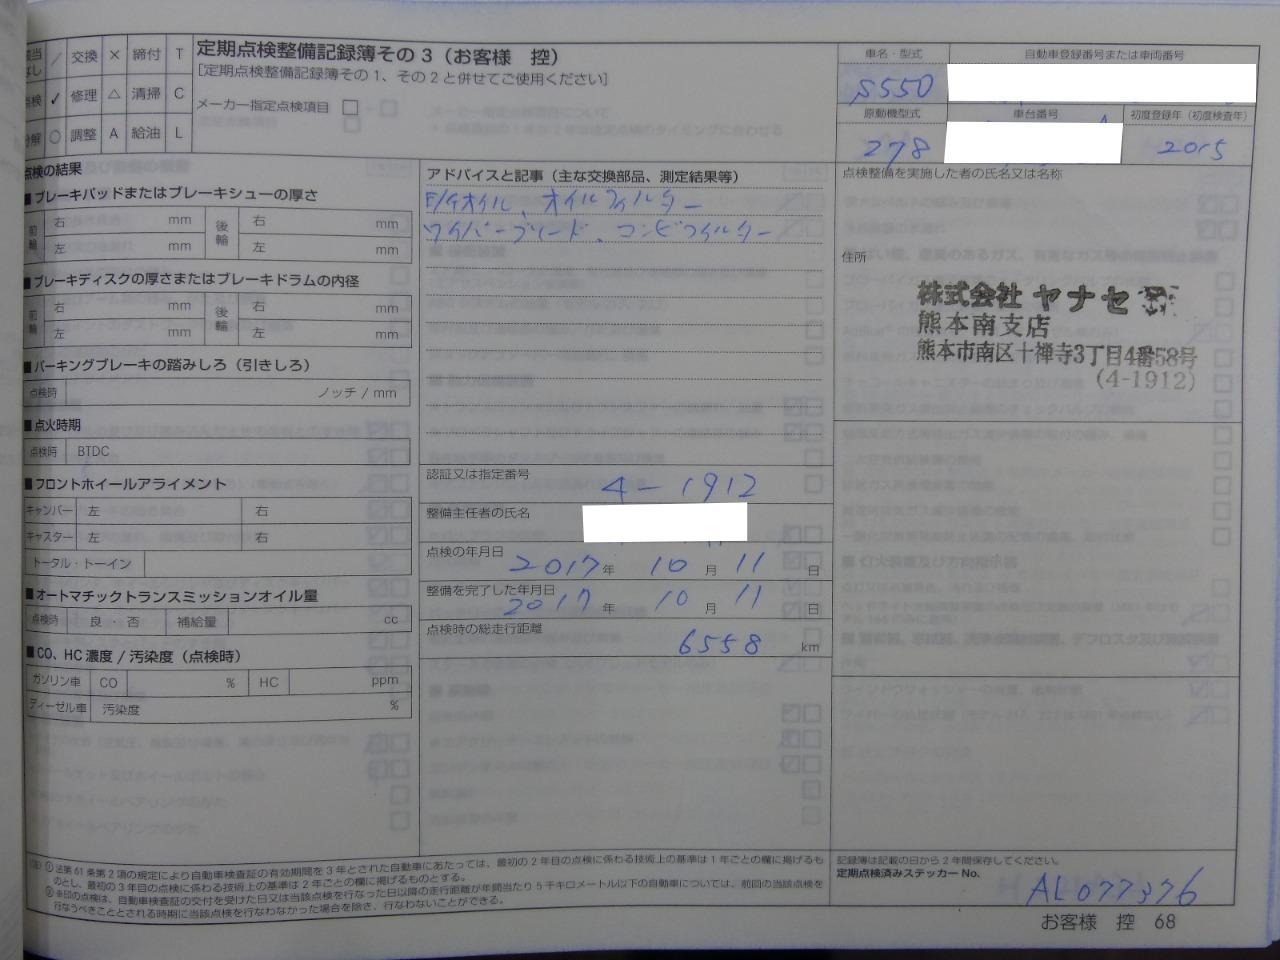 定期点検整備記録簿その3（お客様　控）
［定期点検整備記録簿その1、その2と併せてご使用ください］
メーカー指定点検項目 □
なし ／ 交換 × 締付 T
点検 ✓ 修理 △ 清掃 C
分解 ○ 調整 A 給油 L
車名・型式
S550
自動車登録番号または車両番号
原動機型式
278
車台番号
初度登録年（初度検査年）
2015
点検の結果
■ブレーキパッドまたはブレーキシューの厚さ
前輪 右 mm 後輪 右 mm
左 mm 左 mm
■ブレーキディスクの厚さまたはブレーキドラムの内径
前輪 右 mm 後輪 右 mm
左 mm 左 mm
■パーキングブレーキの踏みしろ（引きしろ）
点検時 ノッチ / mm
■点火時期
点検時 BTDC
■フロントホイールアライメント
キャンバー 左 右
キャスター 左 右
トータル・トーイン
■オートマチックトランスミッションオイル量
点検時 良・否 補給量 cc
■CO、HC濃度 / 汚染度（点検時）
ガソリン車 CO % HC ppm
ディーゼル車 汚染度 %
アドバイスと記事（主な交換部品、測定結果等）
E/Gオイル、オイルフィルター
ワイパーブレード、コンビフィルター
認証又は指定番号
4-1912
整備主任者の氏名
点検の年月日
2017年 10月 11日
整備を完了した年月日
2017年 10月 11日
点検時の総走行距離
6558 km
点検整備を実施した者の氏名又は名称
住所
株式会社 ヤナセ
熊本南支店
熊本市南区十禅寺3丁目4番58号
(4-1912)
（注）①法第61条第2項の規定により自動車検査証の有効期間を3年とされた自動車にあたっては、最初の2年目の点検に係わる技術上の基準は1年ごとの欄に掲げるも
のとし、最初の3年目の点検に係わる技術上の基準は2年ごとの欄に掲げるものとする。
②※印の点検は、自動車検査証の交付を受けた日又は当該点検を行なった日以降の走行距離が年間当たり5千キロメートル以下の自動車については、前回の当該点検を
行なうべきこととされる時期に当該点検を行なわなかった場合を除き、行なわないことができる。
記録簿は記載の日から2年間保存してください。
定期点検済みステッカー No.
AL077376
お客様　控　68